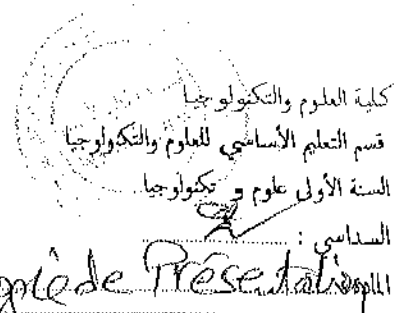 كلية العلوم والتكنولوجيا
قسم التعليم الأساسي للعلوم والتكنولوجيا
السنة الأولى علوم و تكنولوجيا
السداسي :
de Présentation